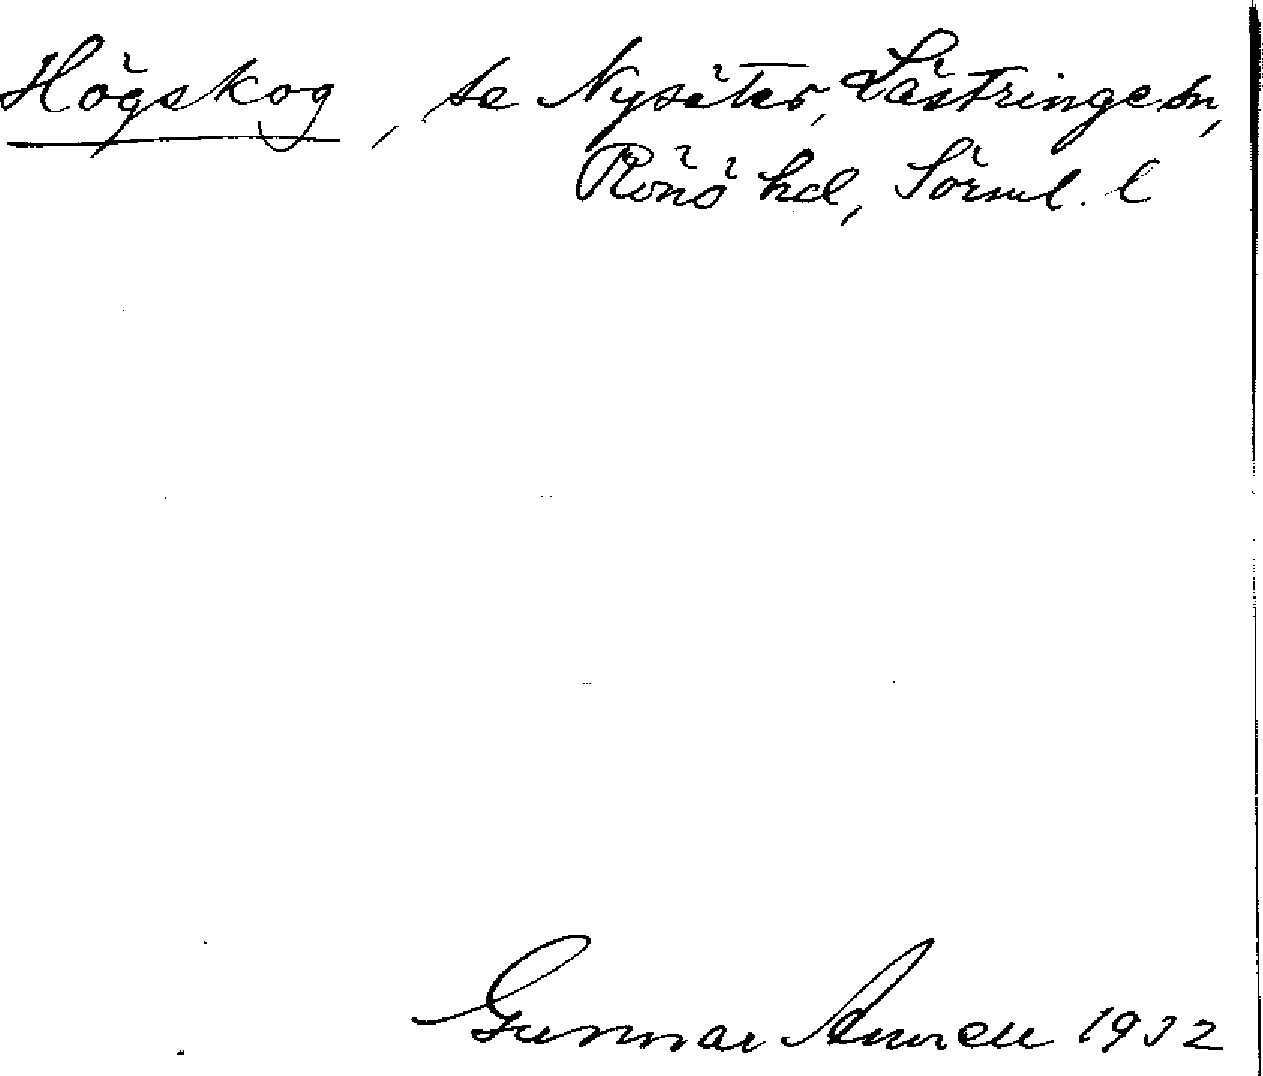 Högskog, se Nysäter, Lästringe sn,
Rönö hd, Sörml. l
Gunnar Amnell 1932